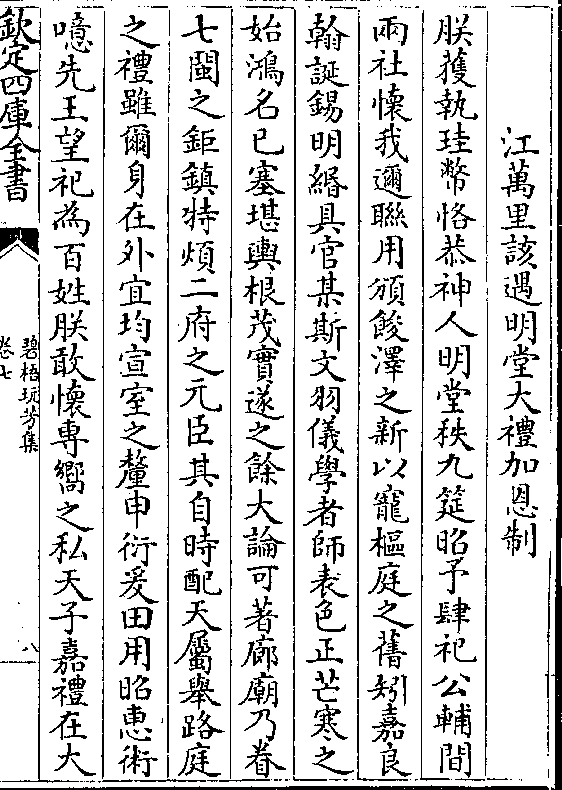 江萬里該遇明堂大禮加恩制
朕䕶執珪幣恪恭神人明堂秩九筵昭予肆祀公輔間
兩社懐我邇聯用頒餕澤之新以寵樞庭之舊矧嘉良
翰誕錫明緡具官某斯文羽儀學者師表色正芒寒之
始鴻名已塞堪輿根茂實遂之餘大論可著廊廟乃眷
七閩之鉅鎮特煩二府之元臣其自時配天屬舉路庭
之禮雖爾身在外宜均宣室之釐申衍爰田用昭恵術
噫先王望祀為百姓朕敢懐専嚮之私天子嘉禮在大
欽定四庫全書
碧梧玩芳集
卷七
八